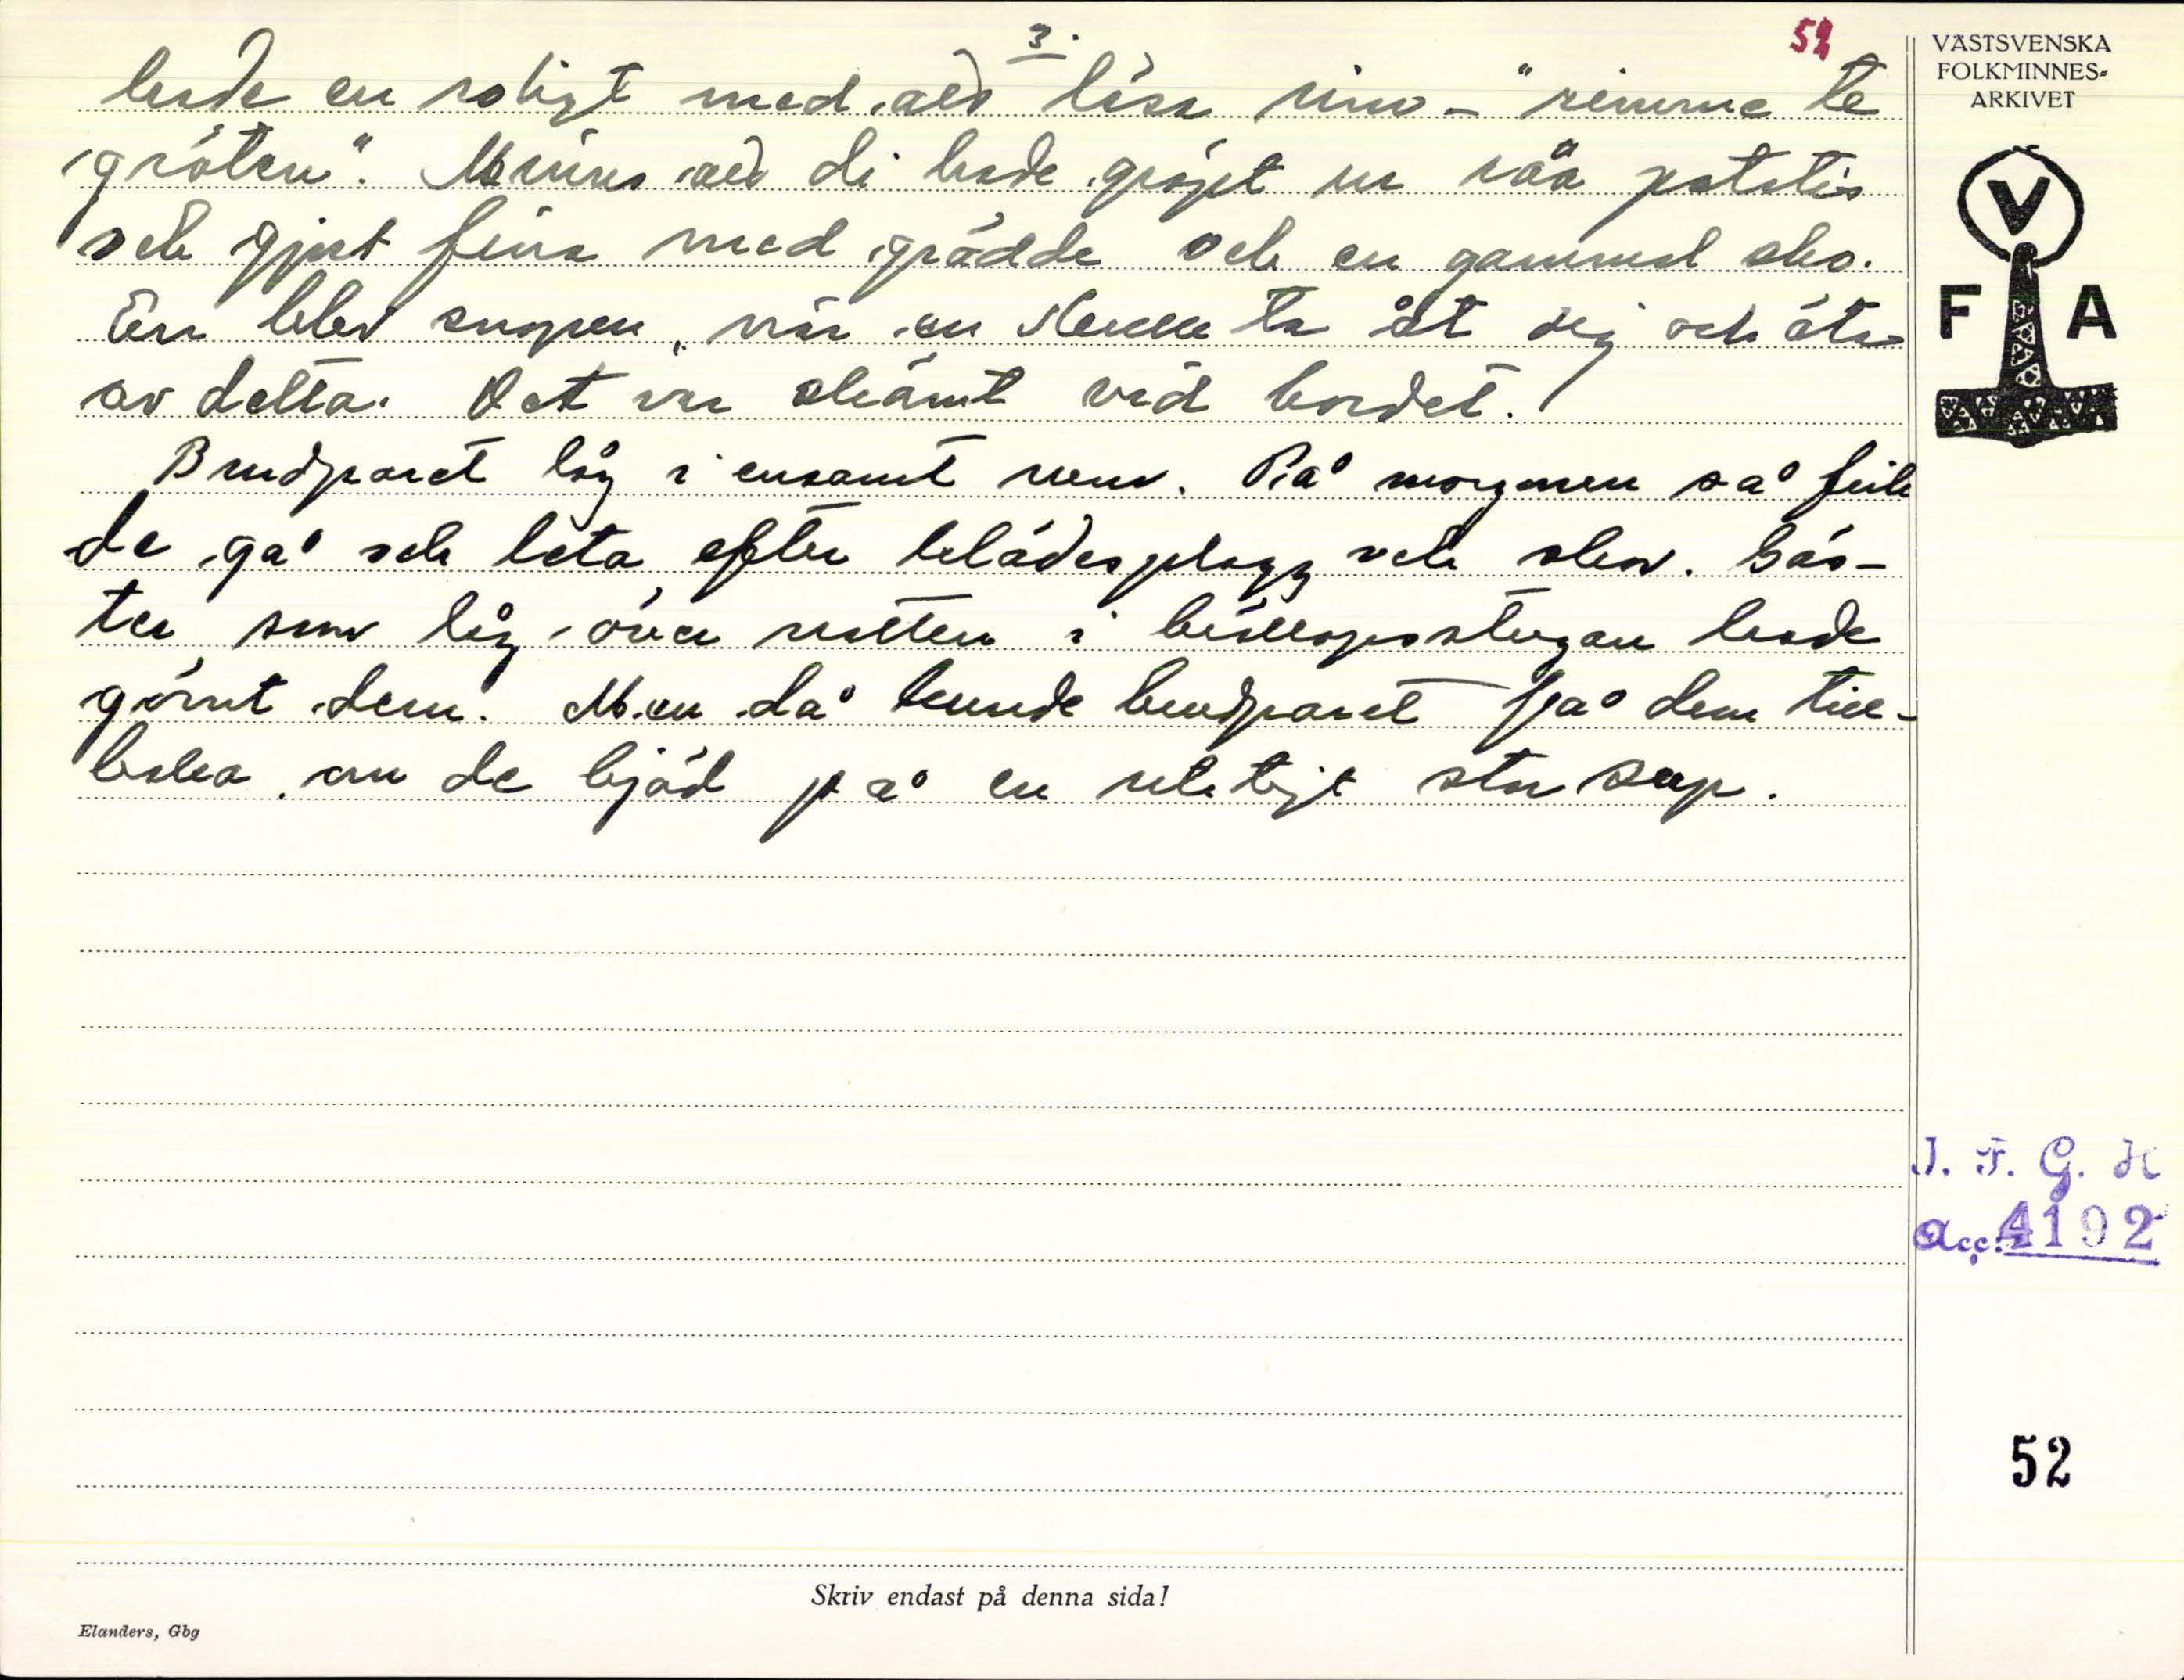 3.
52
VÄSTSVENSKA
FOLKMINNES-
ARKIVET
hade en roligt med att läsa rim - "rimma te
gröten". Minns att di hade gröpt ur råa potatis
och gjort fina med grädde och en gammal sko.
En blev snopen, när en skulle ta åt sig och äta
av detta. Det var skämt vid bordet.
Brudparet låg i ensamt rum. På morgonen så fick
de gå och leta efter klädesplagg och skor. Gäs-
ter som låg över natten i bröllopsstugan hade
gömt dem. Men då kunde brudparet få dem till-
baka om de bjöd på en riktigt stor sup.
V
F A
I. F. G. H
Acc. 4192
52
Skriv endast på denna sida!
Elanders, Gbg